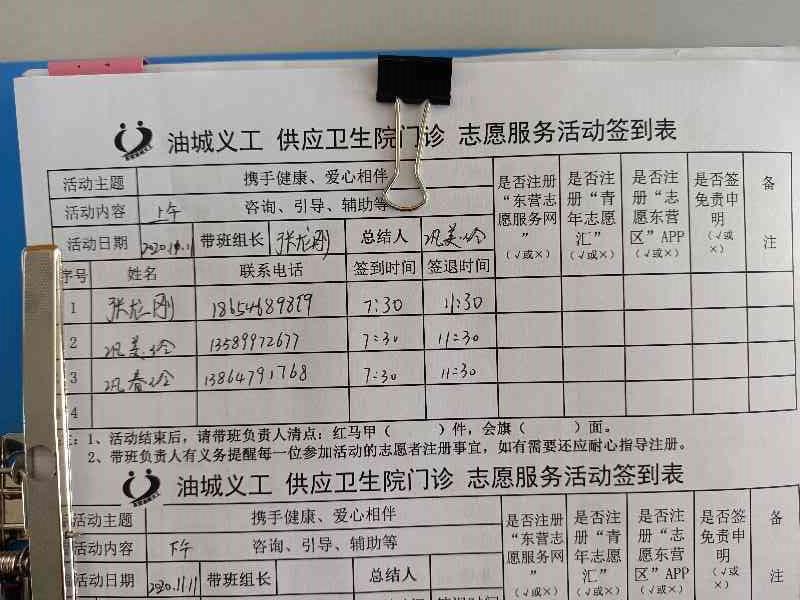 油城义工 供应卫生院门诊 志愿服务活动签到表
活动主题 携手健康、爱心相伴 是否注册“东营志愿服务网”(√或×) 是否注册“青年志愿汇”(√或×) 是否注册“志愿东营区”APP(√或×) 是否签免责申明(√或×) 备注
活动内容 上午 咨询、引导、辅助等
活动日期 带班组长 张龙刚 总结人 巩美玲
序号 姓名 联系电话 签到时间 签退时间
1 张龙刚 7:30 11:30
2 巩美玲 13589972677 7:30 11:30
3 巩春玲 13864791768 7:30 11:30
4
注：1、活动结束后，请带班负责人清点：红马甲（ ）件，会旗（ ）面。
2、带班负责人有义务提醒每一位参加活动的志愿者注册事宜，如有需要还应耐心指导注册。
油城义工 供应卫生院门诊 志愿服务活动签到表
活动主题 携手健康、爱心相伴 是否注册“东营志愿服务网”(√或×) 是否注册“青年志愿汇”(√或×) 是否注册“志愿东营区”APP(√或×) 是否签免责申明(√或×) 备注
活动内容 下午 咨询、引导、辅助等
活动日期 2020.11.11 带班组长 总结人